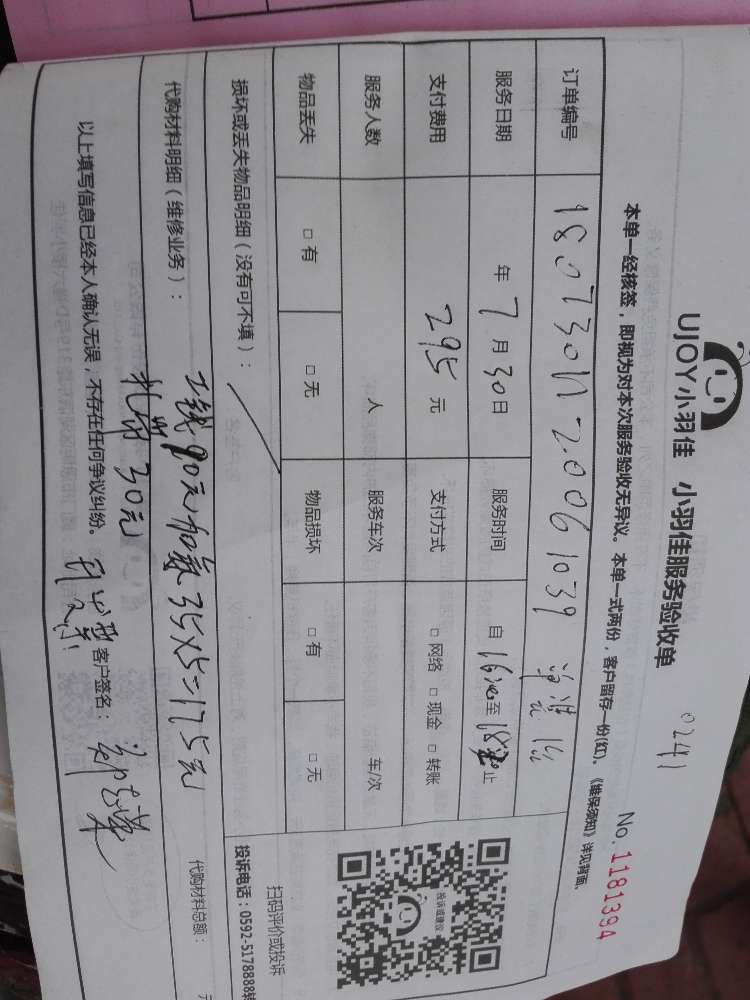 0241
UJOY小羽佳 小羽佳服务验收单
No.1181394
本单一经核签，即视为对本次服务验收无异议。本单一式两份，客户留存一份(红)。《维保须知》详见背面。
订单编号
服务日期 年 7 月 30 日 服务时间 自 至 止
支付费用 295 元 支付方式 □ 网络 □ 现金 □ 转账
服务人数 人 服务车次 车/次
物品丢失 □ 有 □ 无 物品损坏 □ 有 □ 无
投诉或建议
扫码评价或投诉
投诉电话：0592-5178888转
损坏或丢失物品明细（没有可不填）：
代购材料明细（维修业务）： 代购材料总额： 元
工钱90元加氟35×5=175元
扎带30元
以上填写信息已经本人确认无误，不存在任何争议纠纷。 客户签名：